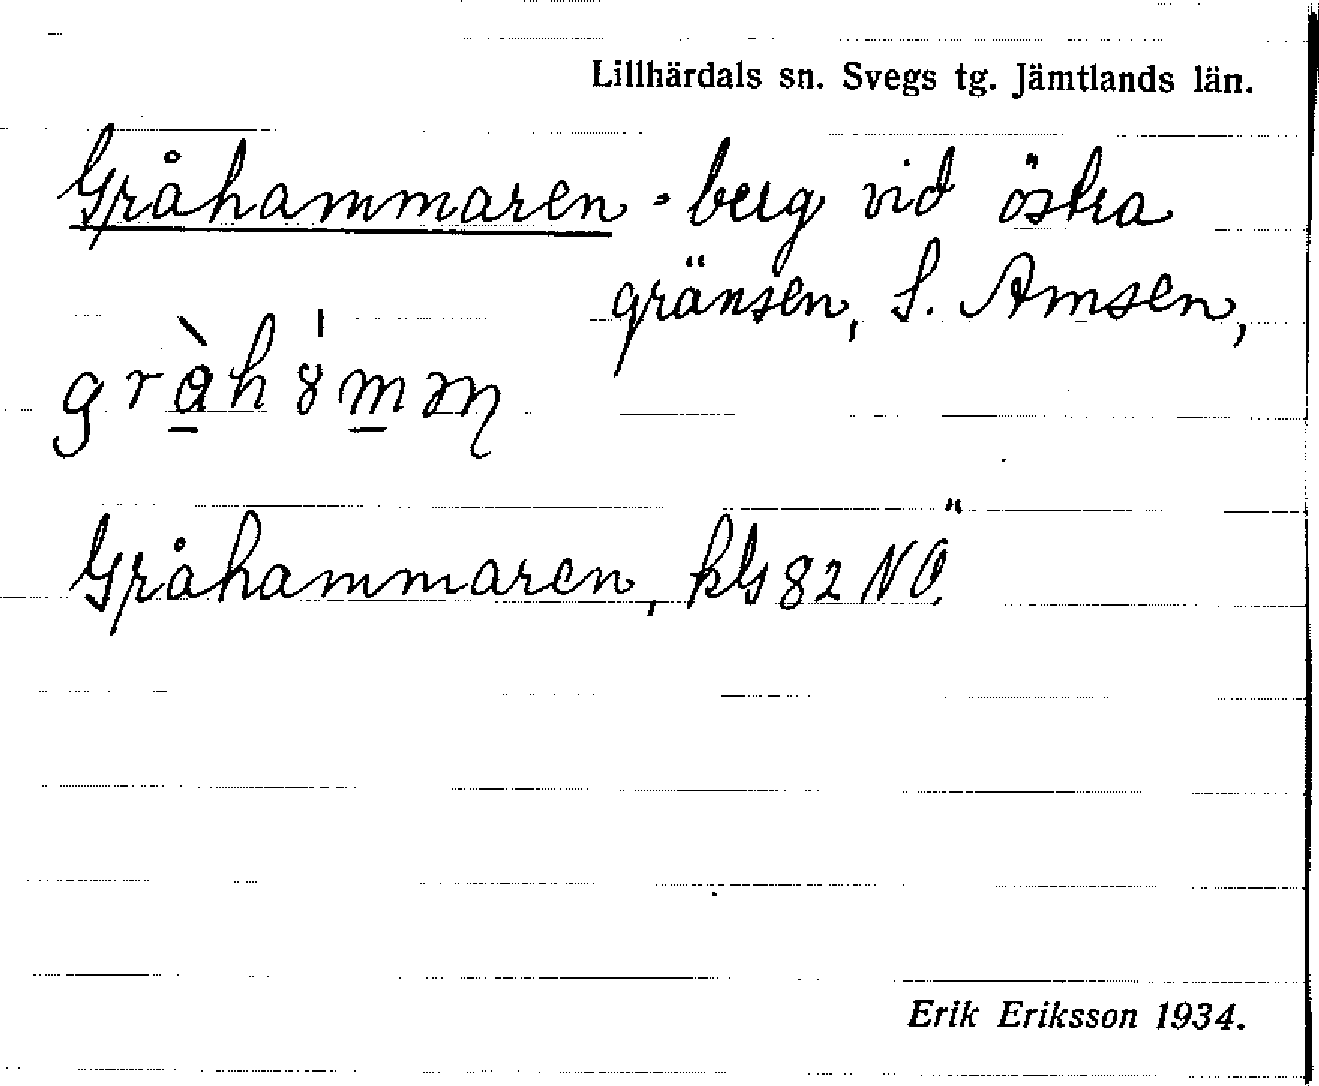 Lillhärdals sn. Svegs tg. Jämtlands län.
Gråhammaren - berg vid östra
gränsen, S. Amsen,
Gråhammaren, kG 82 NÖ.
Erik Eriksson 1934.